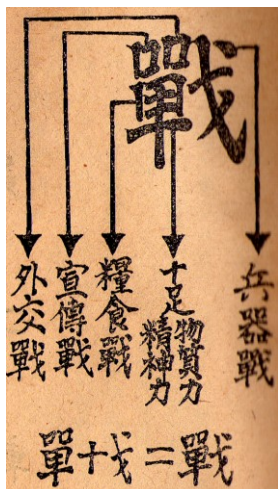 戰
兵器戰
十足物質力
精神力
糧食戰
宣傳戰
外交戰
單十戈＝戰